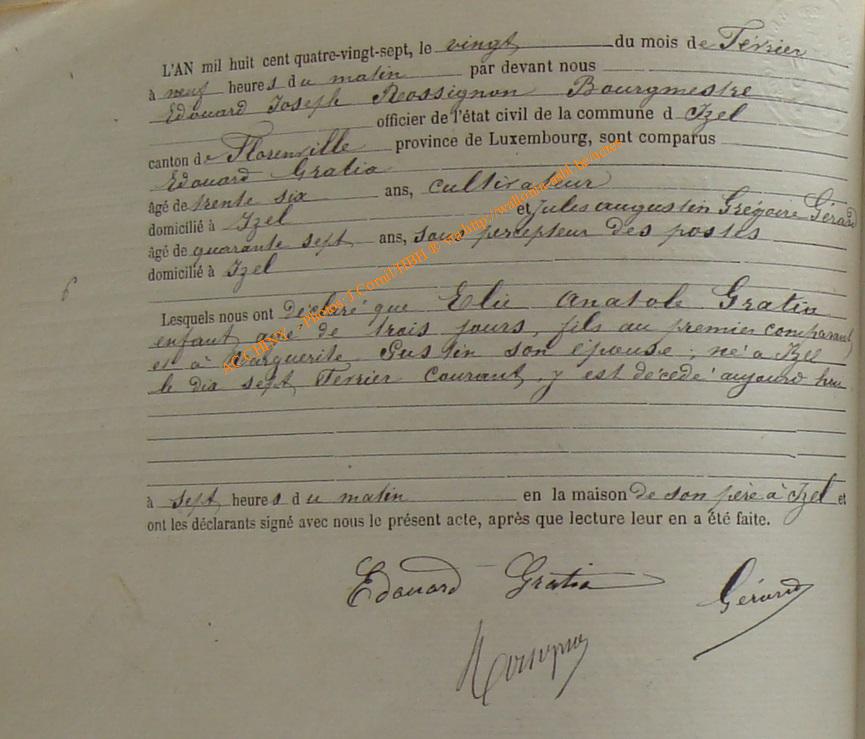 L'AN mil huit cent quatre-vingt-sept, le vingt du mois de Fevrier
à neuf heures du matin par devant nous
Edouard Joseph Rossignon Bourgmestre
officier de l'état civil de la commune d Izel
canton de Florenville province de Luxembourg, sont comparus
Edouard Gratia
âgé de trente six ans, cultivateur
domicilié à Izel et Jules Augustin Grégoire Gérard
âgé de quarante sept ans, sous percepteur des postes
domicilié à Izel
6
Lesquels nous ont déclaré que Elie Anatole Gratia
enfant agé de trois jours, fils au premier comparant
et à Marguerite Gustin son épouse, né à Izel
le dix sept Fevrier courant, y est décédé aujourd hui
à sept heures du matin en la maison de son père à Izel et
ont les déclarants signé avec nous le présent acte, après que lecture leur en a été faite.
Edouard Gratia Gérard
Photos J Cornil HHH © via http://wallonia.asbl.be/actes